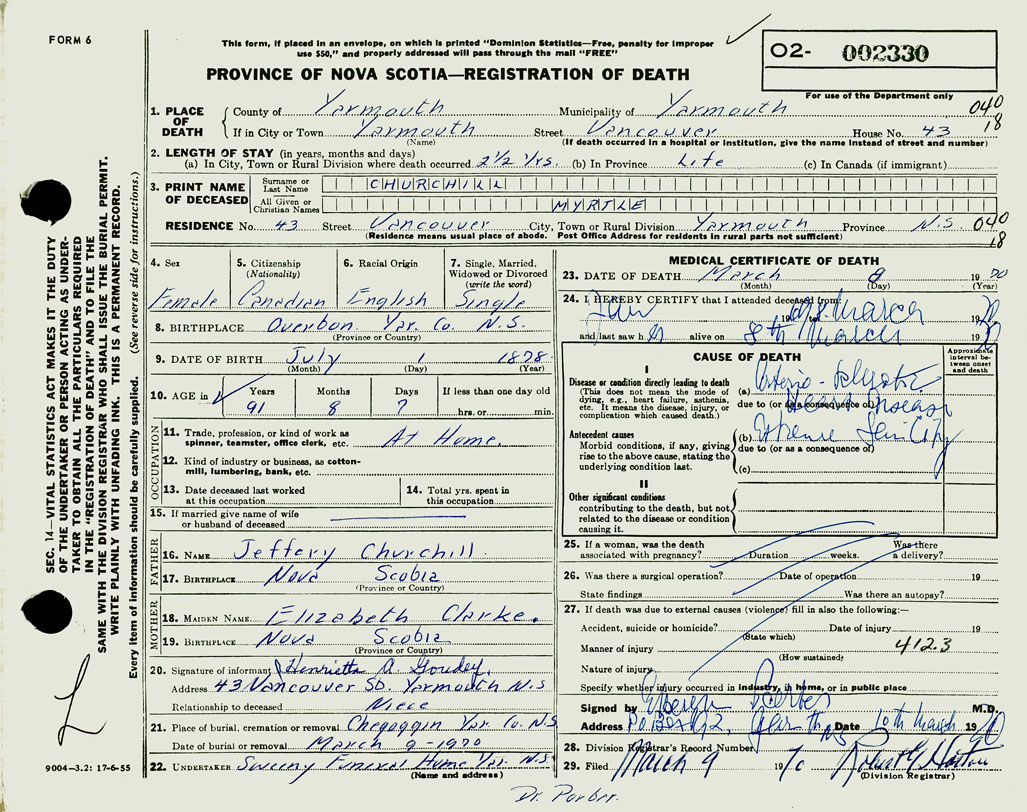 FORM 6
This form, if placed in an envelope, on which is printed "Dominion Statistics—Free, penalty for improper
use $50," and properly addressed will pass through the mail "FREE"
O2- 002330
For use of the Department only
PROVINCE OF NOVA SCOTIA—REGISTRATION OF DEATH
040
18
1. PLACE OF DEATH
County of Yarmouth Municipality of Yarmouth
If in City or Town Yarmouth Street Vancouver House No. 43
(Name) (If death occurred in a hospital or institution, give the name instead of street and number)
2. LENGTH OF STAY (in years, months and days)
(a) In City, Town or Rural Division where death occurred 2 1/2 Yrs. (b) In Province Life (c) In Canada (if immigrant)
3. PRINT NAME OF DECEASED
Surname or Last Name CHURCHILL
All Given or Christian Names MYRTLE
RESIDENCE No. 43 Street Vancouver City, Town or Rural Division Yarmouth Province N.S. 040
18
(Residence means usual place of abode. Post Office Address for residents in rural parts not sufficient)
SEC. 14—VITAL STATISTICS ACT MAKES IT THE DUTY
OF THE UNDERTAKER OR PERSON ACTING AS UNDER-
TAKER TO OBTAIN ALL THE PARTICULARS REQUIRED
IN THE "REGISTRATION OF DEATH" AND TO FILE THE
SAME WITH THE DIVISION REGISTRAR WHO SHALL ISSUE THE BURIAL PERMIT.
WRITE PLAINLY WITH UNFADING INK. THIS IS A PERMANENT RECORD.
Every item of information should be carefully supplied. (See reverse side for instructions.)
4. Sex
Female
5. Citizenship
(Nationality)
Canadian
6. Racial Origin
English
7. Single, Married,
Widowed or Divorced
(write the word)
Single
8. BIRTHPLACE Overton Yar. Co. N.S.
(Province or Country)
9. DATE OF BIRTH July 1 1878
(Month) (Day) (Year)
10. AGE in
Years Months Days If less than one day old
91 8 7 hrs. or min.
OCCUPATION
11. Trade, profession, or kind of work as
spinner, teamster, office clerk, etc. At Home
12. Kind of industry or business, as cotton-
mill, lumbering, bank, etc.
13. Date deceased last worked
at this occupation
14. Total yrs. spent in
this occupation
15. If married give name of wife
or husband of deceased
FATHER
16. NAME Jeffery Churchill.
17. BIRTHPLACE Nova Scotia
(Province or Country)
MOTHER
18. MAIDEN NAME Elizabeth Clarke.
19. BIRTHPLACE Nova Scotia
(Province or Country)
20. Signature of informant Henrietta A Goudey.
Address 43 Vancouver St. Yarmouth N.S
Relationship to deceased Niece
21. Place of burial, cremation or removal Chegoggin Yar. Co. N.S
Date of burial or removal March 9-1970
22. UNDERTAKER Sweeny Funeral Home Yar. N.S
(Name and address)
9004—3.2: 17-6-55
MEDICAL CERTIFICATE OF DEATH
23. DATE OF DEATH March 8 1970
(Month) (Day) (Year)
24. I HEREBY CERTIFY that I attended deceased from:
Jan 19 to March 1970
and last saw h er alive on 8th March 19
CAUSE OF DEATH
Approximate
interval be-
tween onset
and death
I
Disease or condition directly leading to death
(This does not mean the mode of
dying, e.g., heart failure, asthenia,
etc. It means the disease, injury, or
complication which caused death.)
(a) Heart Disease
due to (or as a consequence of)
Antecedent causes
Morbid conditions, if any, giving
rise to the above cause, stating the
underlying condition last.
(b)
due to (or as a consequence of)
(c)
II
Other significant conditions
contributing to the death, but not
related to the disease or condition
causing it.
25. If a woman, was the death
associated with pregnancy? Duration weeks. Was there
a delivery?
26. Was there a surgical operation? Date of operation 19
State findings Was there an autopsy?
27. If death was due to external causes (violence) fill in also the following:—
Accident, suicide or homicide? Date of injury 19
(State which)
Manner of injury 412.3
(How sustained)
Nature of injury
Specify whether injury occurred in industry, in home, or in public place
Signed by M.D.
Address Date 10th March 1970
28. Division Registrar's Record Number
29. Filed March 9 1970 Robert Horton
(Division Registrar)
Dr. Parker.